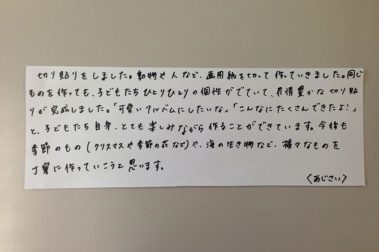 切り貼りをしました。動物や人など、画用紙を切って作っていきました。同じ
ものを作っても、子どもたちひとりひとりの個性がでていて、表情豊かな切り貼
りが完成しました。「可愛いアルバムにしたいな」「こんなにたくさんできたよ!」
と、子どもたち自身、とても楽しみながら作ることができています。今後も
季節のもの(クリスマスや季節の花など)や、海の生き物など、様々なものを
丁寧に作っていこうと思います。
〈あじさい〉